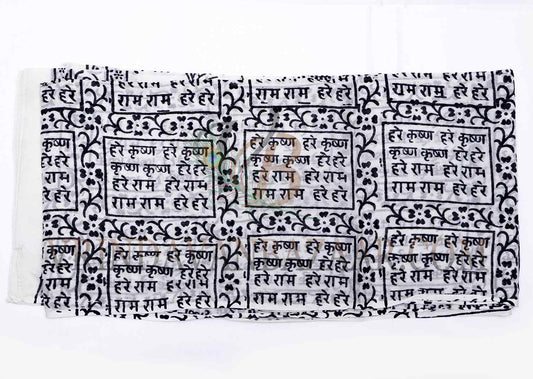 राम राम हरे हरे
राम राम हरे हरे
राम राम हरे हरे
कृष्ण
हरे हरे
राम
हरे हरे
हरे कृष्ण हरे कृष्ण
कृष्ण कृष्ण हरे हरे
हरे राम हरे राम
राम राम हरे हरे
हरे कृष्ण हरे कृष्ण
कृष्ण कृष्ण हरे हरे
हरे राम हरे राम
राम राम हरे हरे
हरे कृष्ण हरे कृष्ण
कृष्ण कृष्ण हरे हरे
हरे राम हरे राम
राम राम हरे हरे
कृष्ण
हरे हरे
राम
हरे हरे
हरे कृष्ण हरे कृष्ण
कृष्ण कृष्ण हरे हरे
हरे राम हरे राम
राम राम हरे हरे
हरे कृष्ण हरे कृष्ण
कृष्ण कृष्ण हरे हरे
हरे राम हरे राम
राम राम हरे हरे
हरे कृष्ण हरे कृष्ण
कृष्ण कृष्ण हरे हरे
हरे राम हरे राम
राम राम हरे हरे